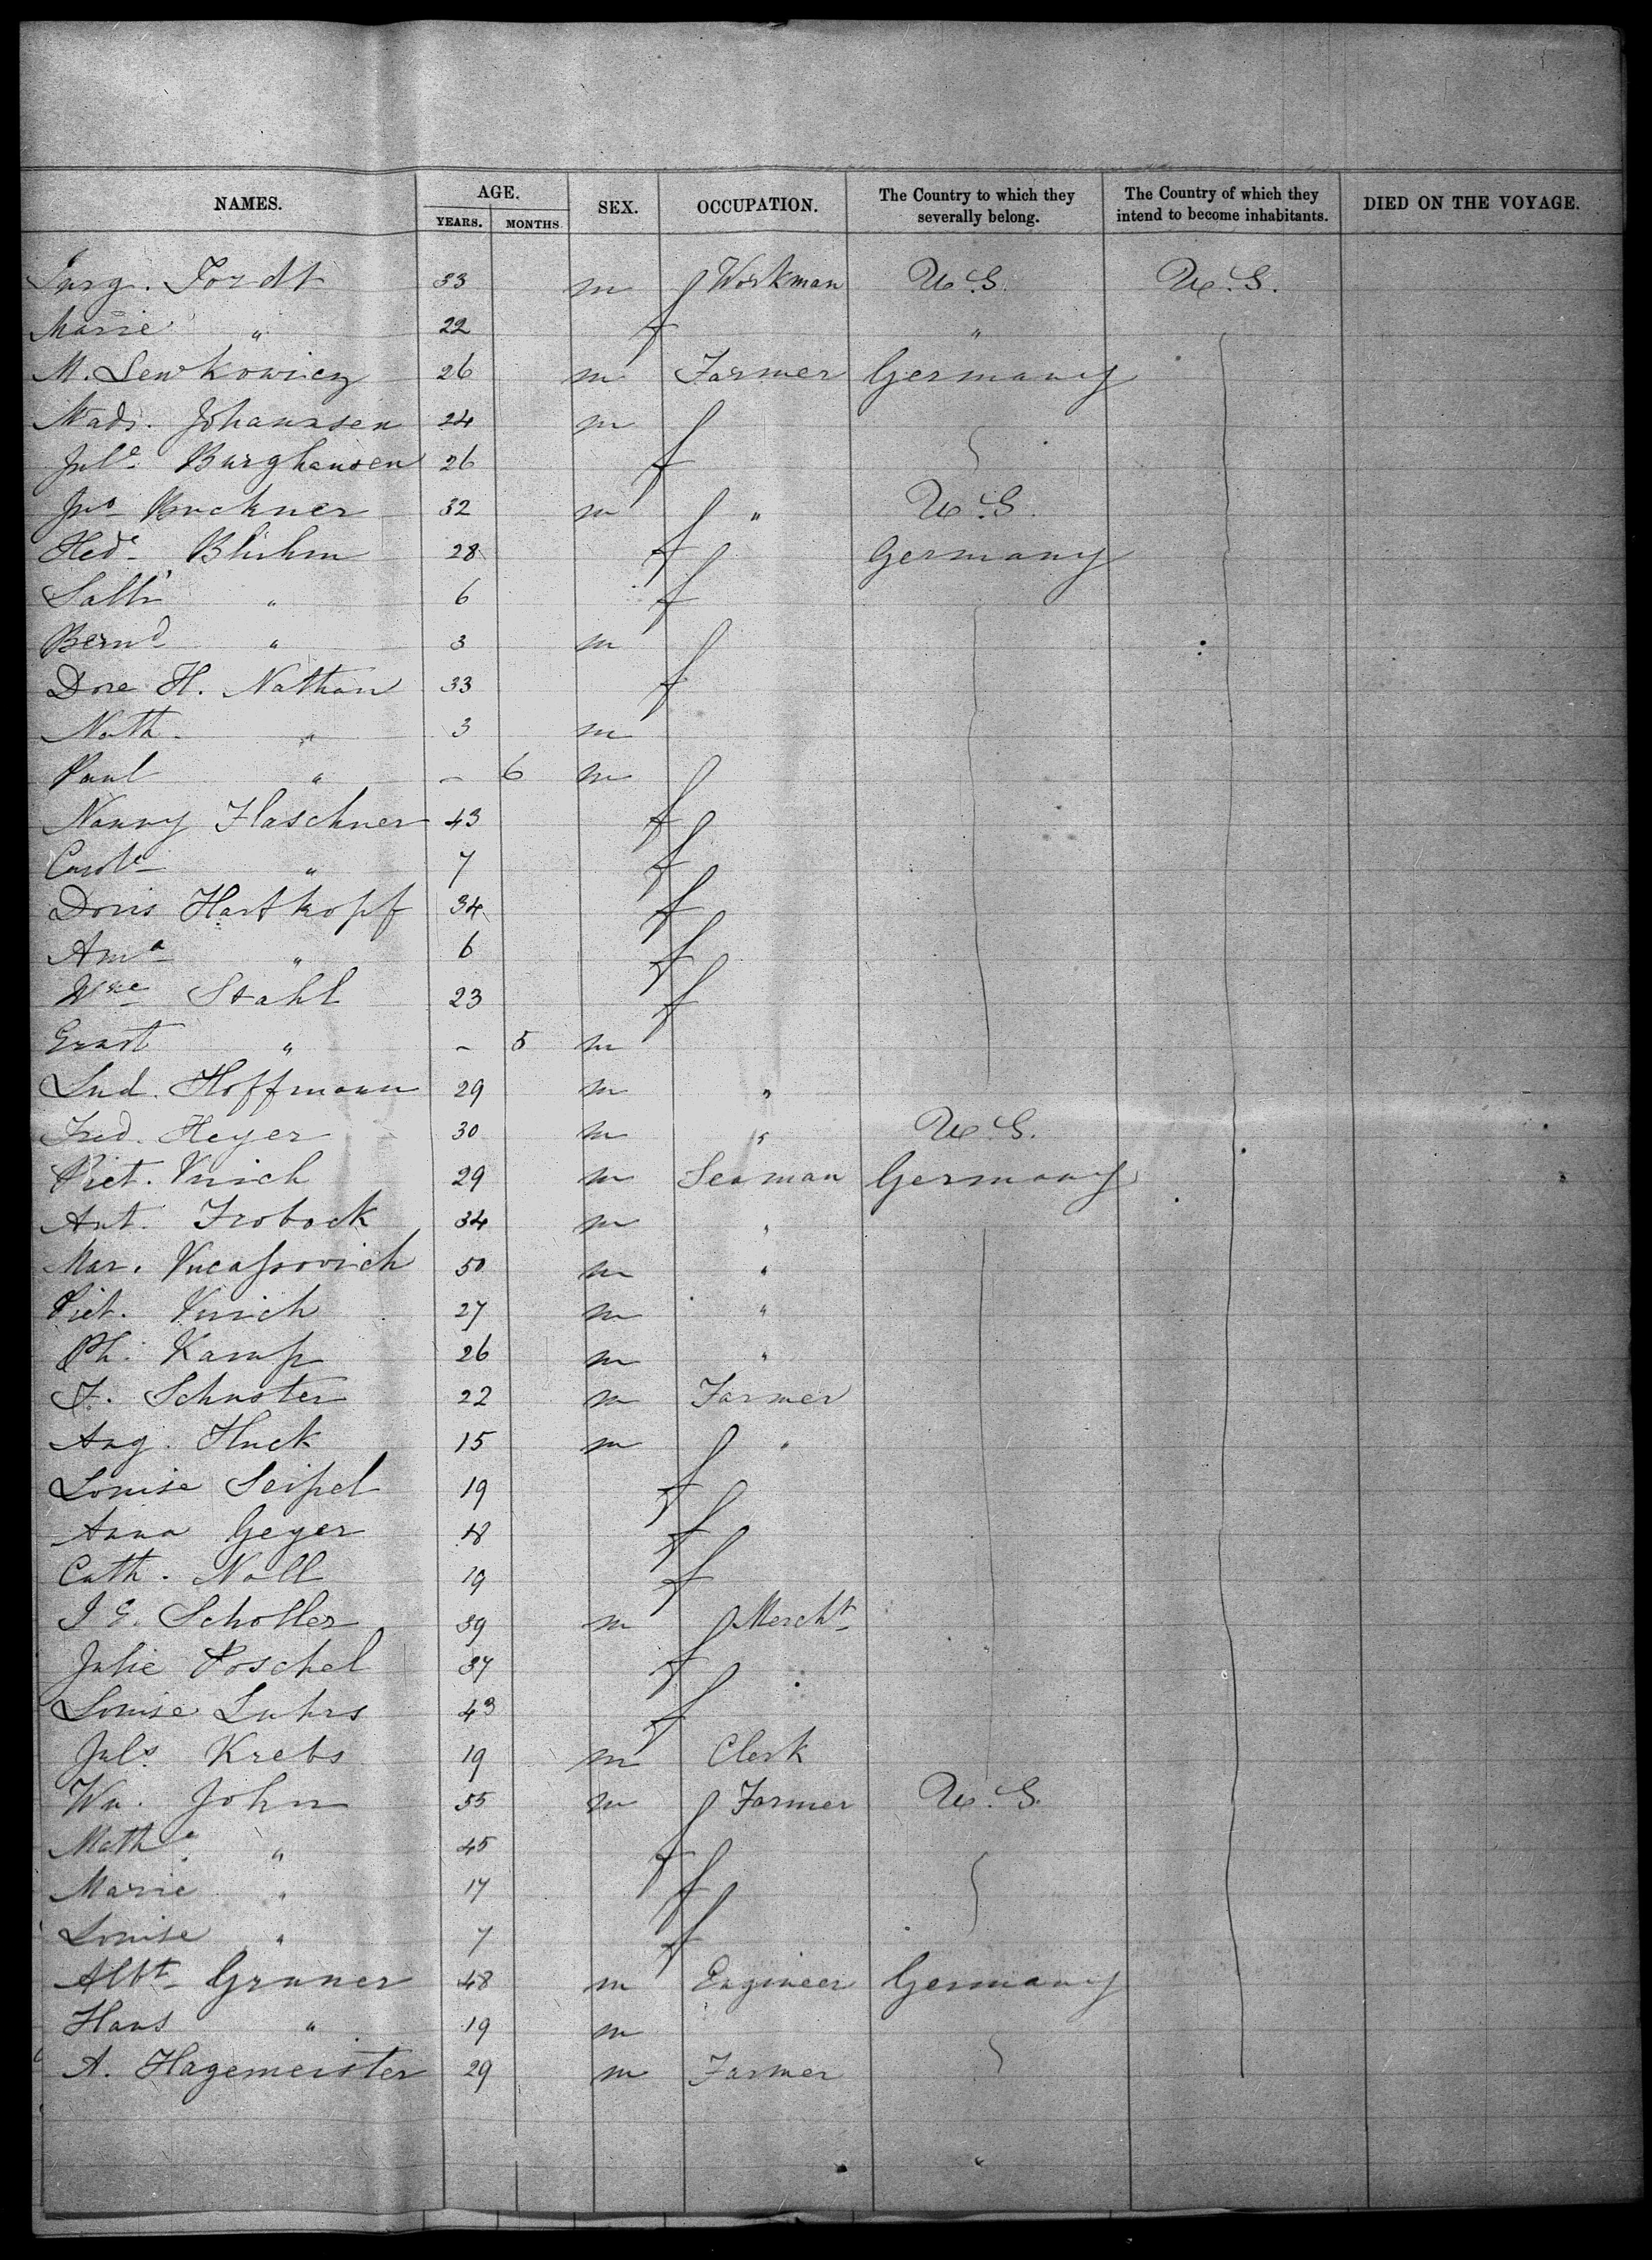 NAMES. AGE. SEX. OCCUPATION. The Country to which they severally belong. The Country of which they intend to become inhabitants. DIED ON THE VOYAGE.
YEARS. MONTHS
Jurg. Tordt 33 m Workman U.S. U.S.
Marie " 22 f "
M. Lewkowicz 26 m Farmer Germany
Mads. Johannsen 24 m
Jule Burghausen 26 f
Jno Buckner 32 m " U.S.
Hede Bluhm 28 f Germany
Salli " 6 f
Bernd " 3 m
Dore H. Nathan 33 f
Nath. " 3 m
Paul " – 6 m
Nanny Flaschner 43 f
Carole " 7 f
Doris Hartkopf 34 f
Ama " 6 f
Wne Stahl 23 f
Ernst " – 5 m
Lud. Hoffmann 29 m "
Fred. Heyer 30 m " U.S.
Piet. Vusich 29 m Seaman Germany
Ant. Froback 34 m "
Mar. Vucassovich 50 m "
Piet. Vusich 27 m "
Ph. Kamp 26 m "
F. Schuster 22 m Farmer
Aug. Huck 15 m "
Louise Seipel 19 f
Anna Geyer 18 f
Cath. Noll 19 f
I E. Scholler 39 m Mercht
Julie Poschel 37 f
Louise Luhrs 43 f
Juls Krebs 19 m Clerk
Wm. John 55 m Farmer U.S.
Mathe " 45 f
Marie " 17 f
Louise " 7 f
Albt Gruner 48 m Engineer Germany
Hans " 19 m
A. Hagemeister 29 m Farmer